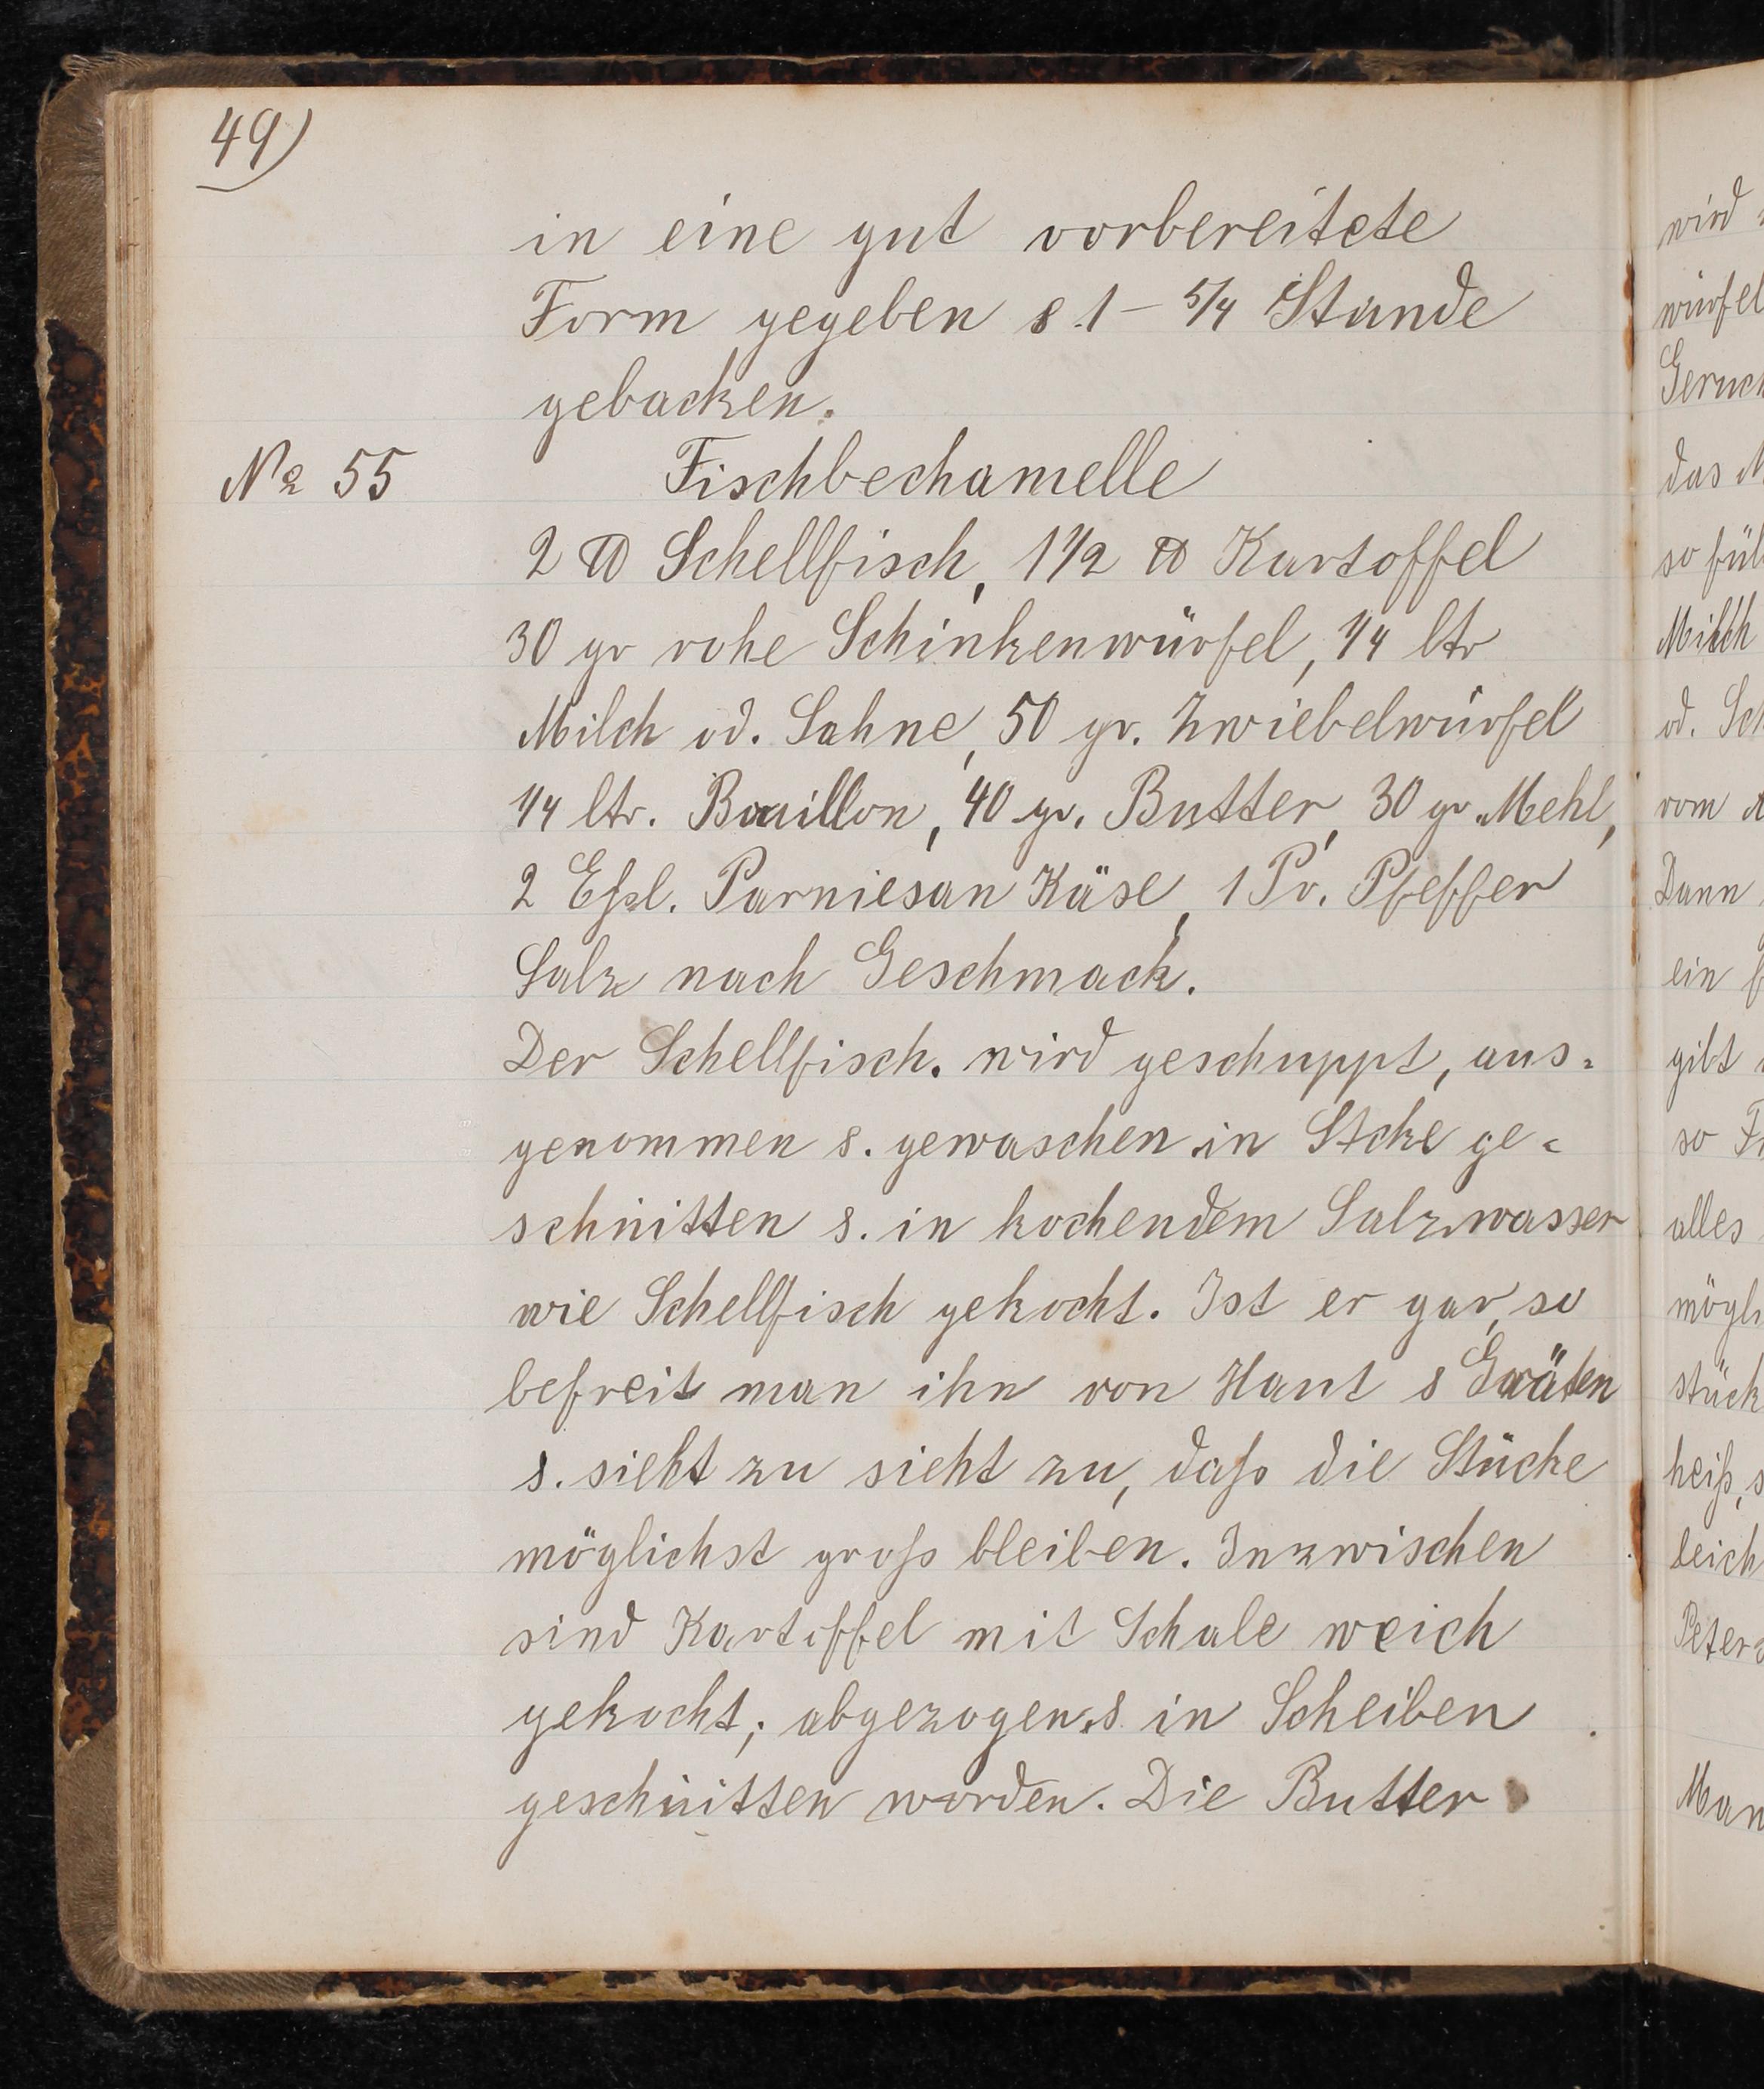 49)
in eine gut vorbereitete
Form gegeben & 1 - 5/4 Stunde
gebacken.
No 55 Fischbechamelle
2 ℔ Schellfisch, 1 1/2 ℔ Kartoffel
30 gr rohe Schinkenwürfel, 1/4 ltr
Milch od. Sahne, 50 gr. Zwiebelwürfel
1/4 ltr. Bouillon, 40 gr. Butter, 30 gr Mehl,
2 Eßl. Parmesan Käse, 1 Pr. Pfeffer
Salz nach Geschmack.
Der Schellfisch. wird geschuppt, aus-
genommen &. gewaschen in Stcke ge-
schnitten &. in kochendem Salzwasser
wie Schellfisch gekocht. Ist er gar, so
befreit man ihn von Haut & Gräten
&. sieht zu sieht zu, daß die Stücke
möglichst groß bleiben. Inzwischen
sind Kartoffel mit Schale weich
gekocht; abgezogen & in Scheiben
geschnitten worden. Die Butter
wird
würfel
Geruch
das
so
Milch
od. Sch
vom
Dann
ein
gibt
so
alles
mögli
stück
heiß, s
leich
Peters
Man